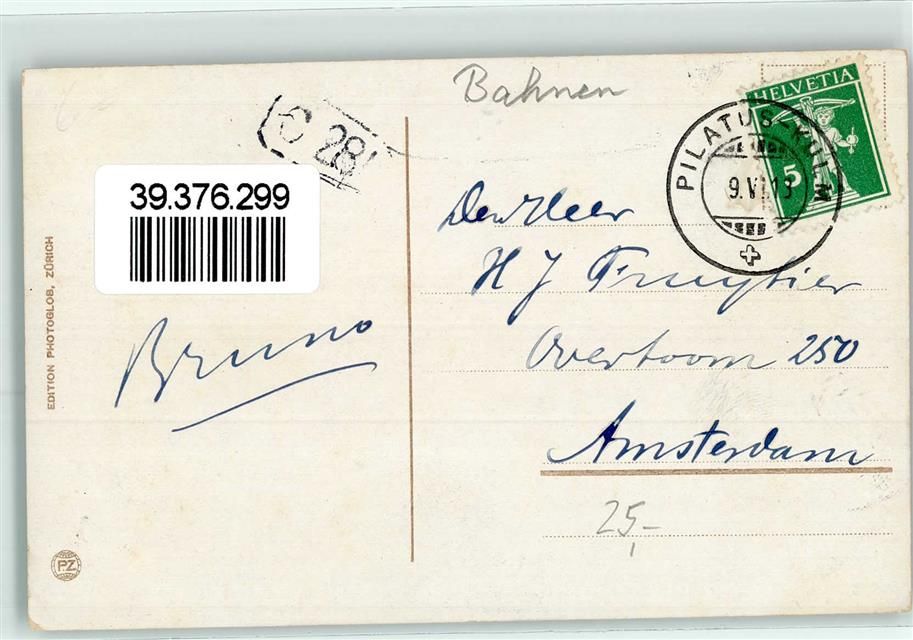 Bahnen
HELVETIA
5
PILATUS-KULM
9.VI.13
C 28
39.376.299
Den Heer
H J Fruytier
Overtoom 250
Amsterdam
25,-
Bruno
EDITION PHOTOGLOB, ZÜRICH
P.Z.